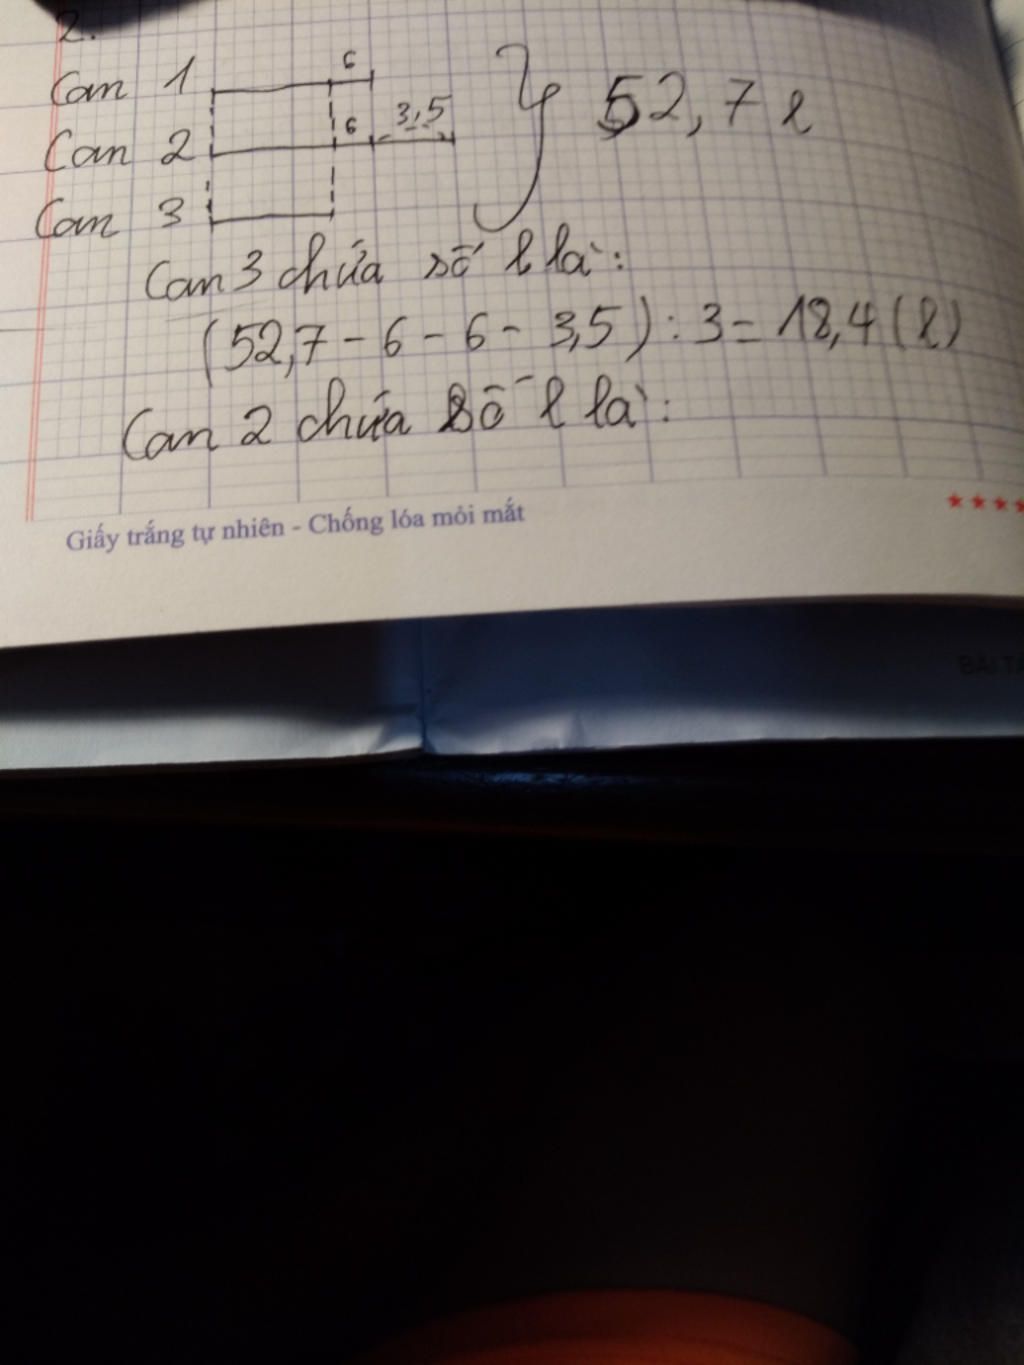 2.
Can 1 6
Can 2 6 3,5 52,7 l
Can 3
Can 3 chứa số l là:
(52,7 - 6 - 6 - 3,5) : 3 = 18,4 (l)
Can 2 chứa số l là:
Giấy trắng tự nhiên - Chống lóa mỏi mắt